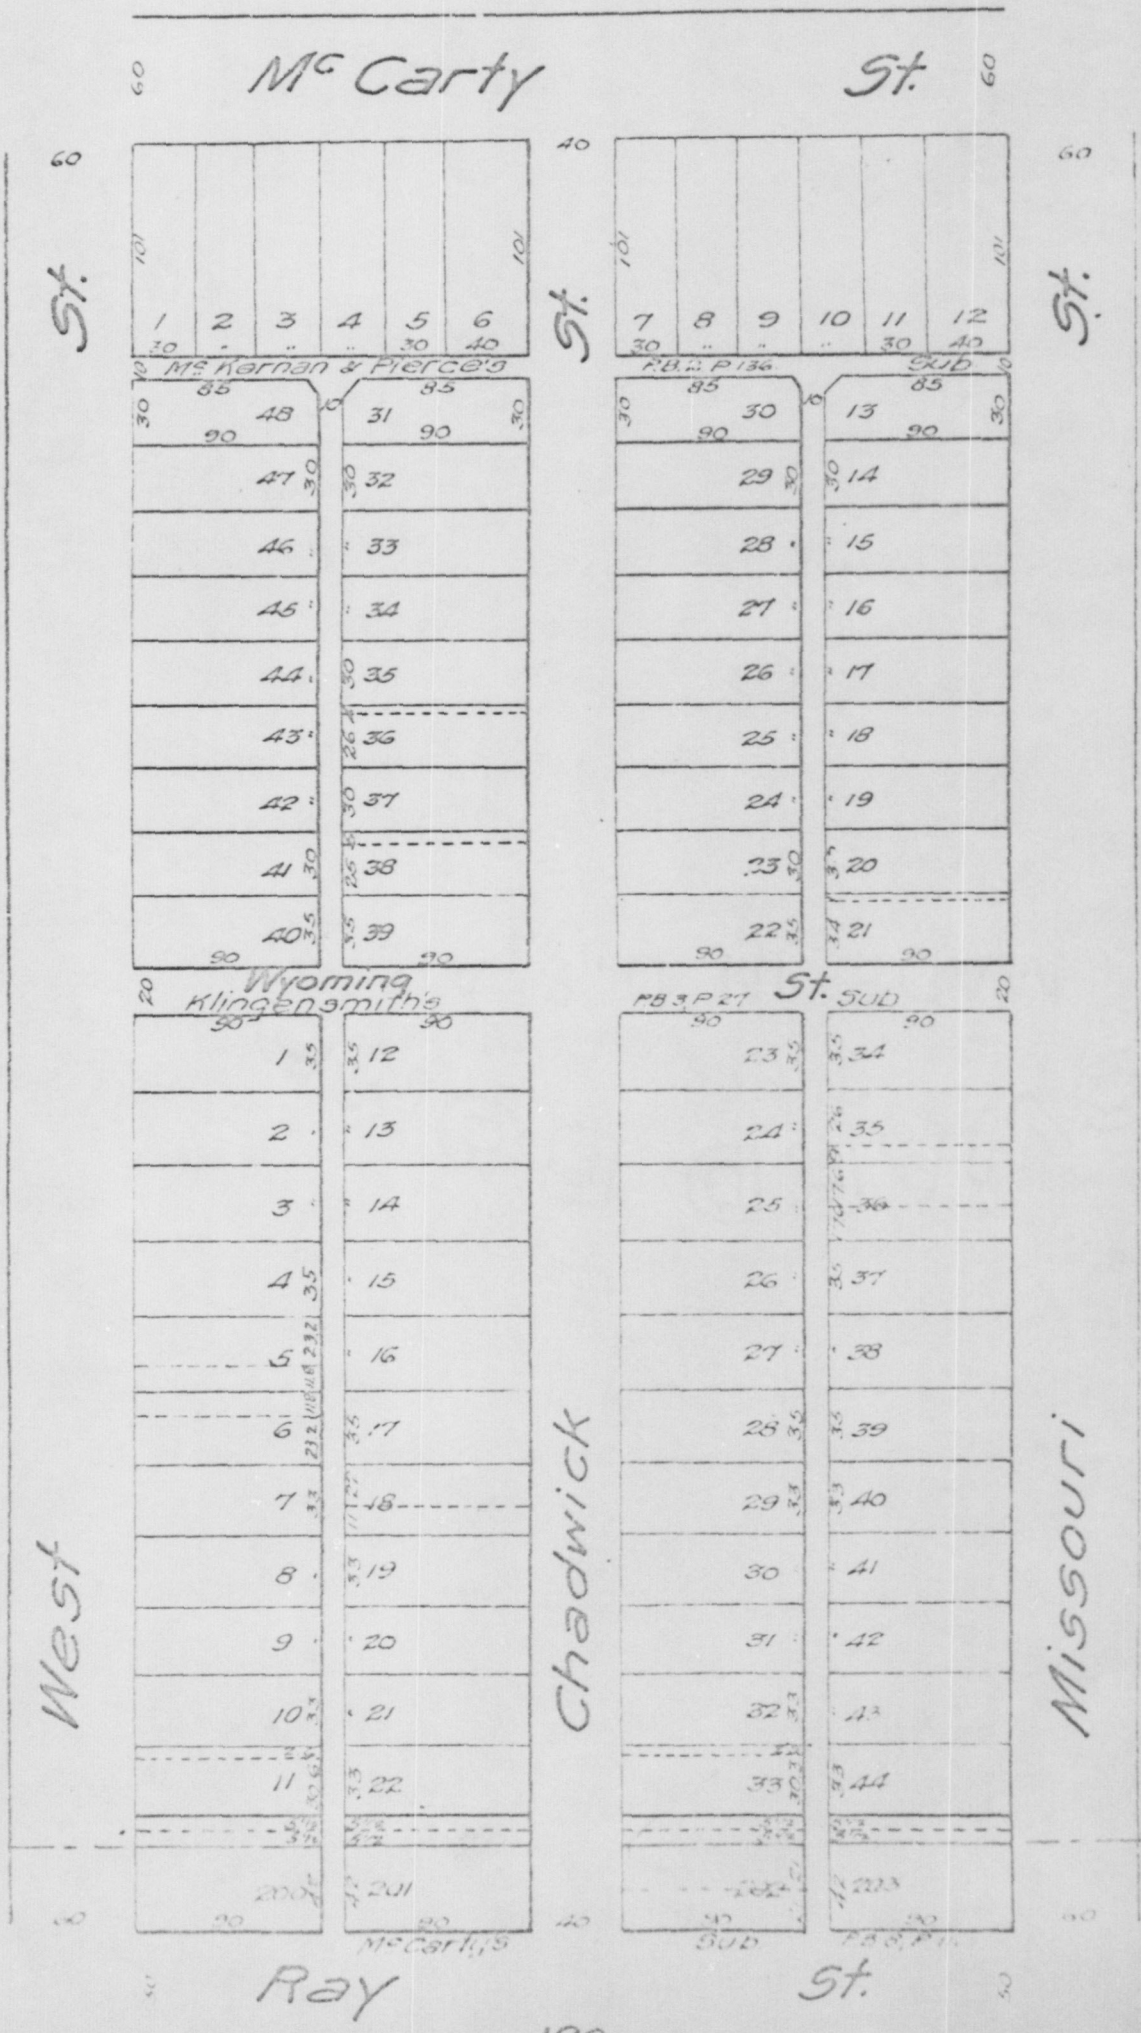 60 Mc Carty St. 60
60 40 60
101 101 101 101
St. St. St.
1 2 3 4 5 6 7 8 9 10 11 12
30 " " " 30 40 30 " " " 30 40
10 Mc Karnan & Pierce's P.B. 2 P 136 Sub 10
85 85 85 85
30 48 10 31 30 30 30 10 13 30
90 90 90 90
47 30 30 32 29 30 30 14
46 " " 33 28 " " 15
45 " " 34 27 " " 16
44 " 30 35 26 " " 17
43 " 26 36 25 " " 18
42 " 30 37 24 " " 19
41 30 25 38 23 30 20
40 35 35 39 22 35 34 21
90 90 90 90
20 Wyoming St. 20
Klingensmith's P.B 3, P 27 Sub
90 90 90 90
1 35 35 12 23 35 35 34
2 " " 13 24 " 26 35
3 " " 14 25 " 176 176 36
4 35 " 15 26 " 35 37
5 232 118 " 16 27 " " 38
118
6 232 35 17 28 35 35 39
7 33 11 22 18 29 33 33 40
8 " 33 19 30 " " 41
9 " " 20 31 " " 42
10 33 " 21 32 33 " 43
11 30 33 22 33 30 33 44
5 1/2 5 1/2 5 1/2 5 1/2
5 1/2 5 1/2 5 1/2 5 1/2
West Chadwick Missouri
200 42 201 202 21 42 203
60 90 90 40 90 90 60
McCarty's Sub P.B 8, P
50 Ray St. 50